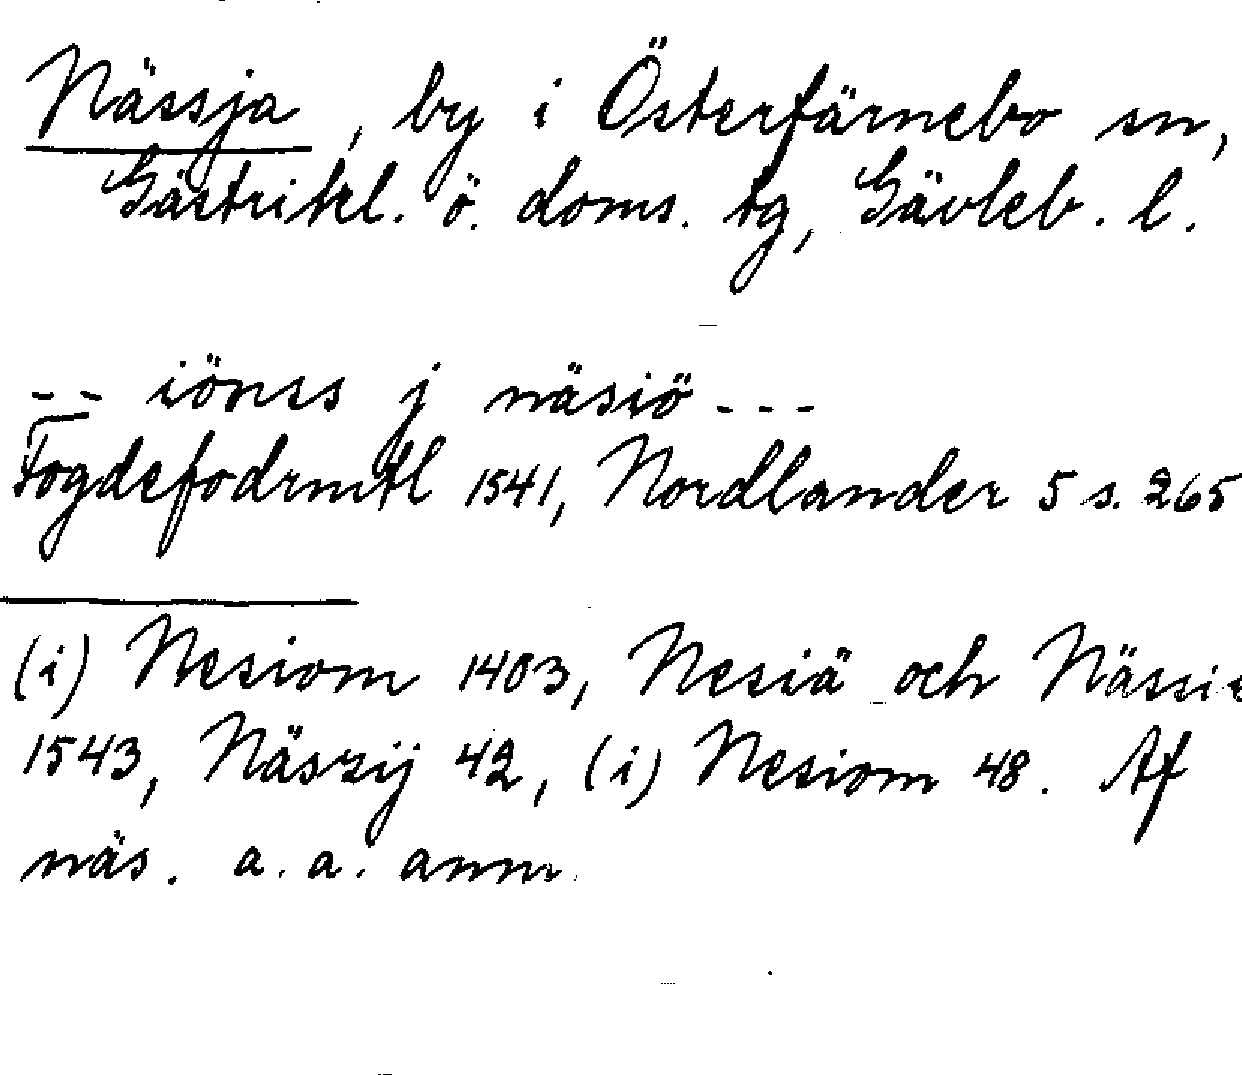 Nässja, by i Österfärnebo sn,
Gästrikl. ö. doms. tg, Gävleb. l.
-- iönss j näsiö ---
Fogdefodrmtl 1541, Nordlander 5 s. 265
(i) Nesiom 1403, Nesiä och Nässie
1543, Näszij 42, (i) Nesiom 48. Af
näs. a. a. anm.